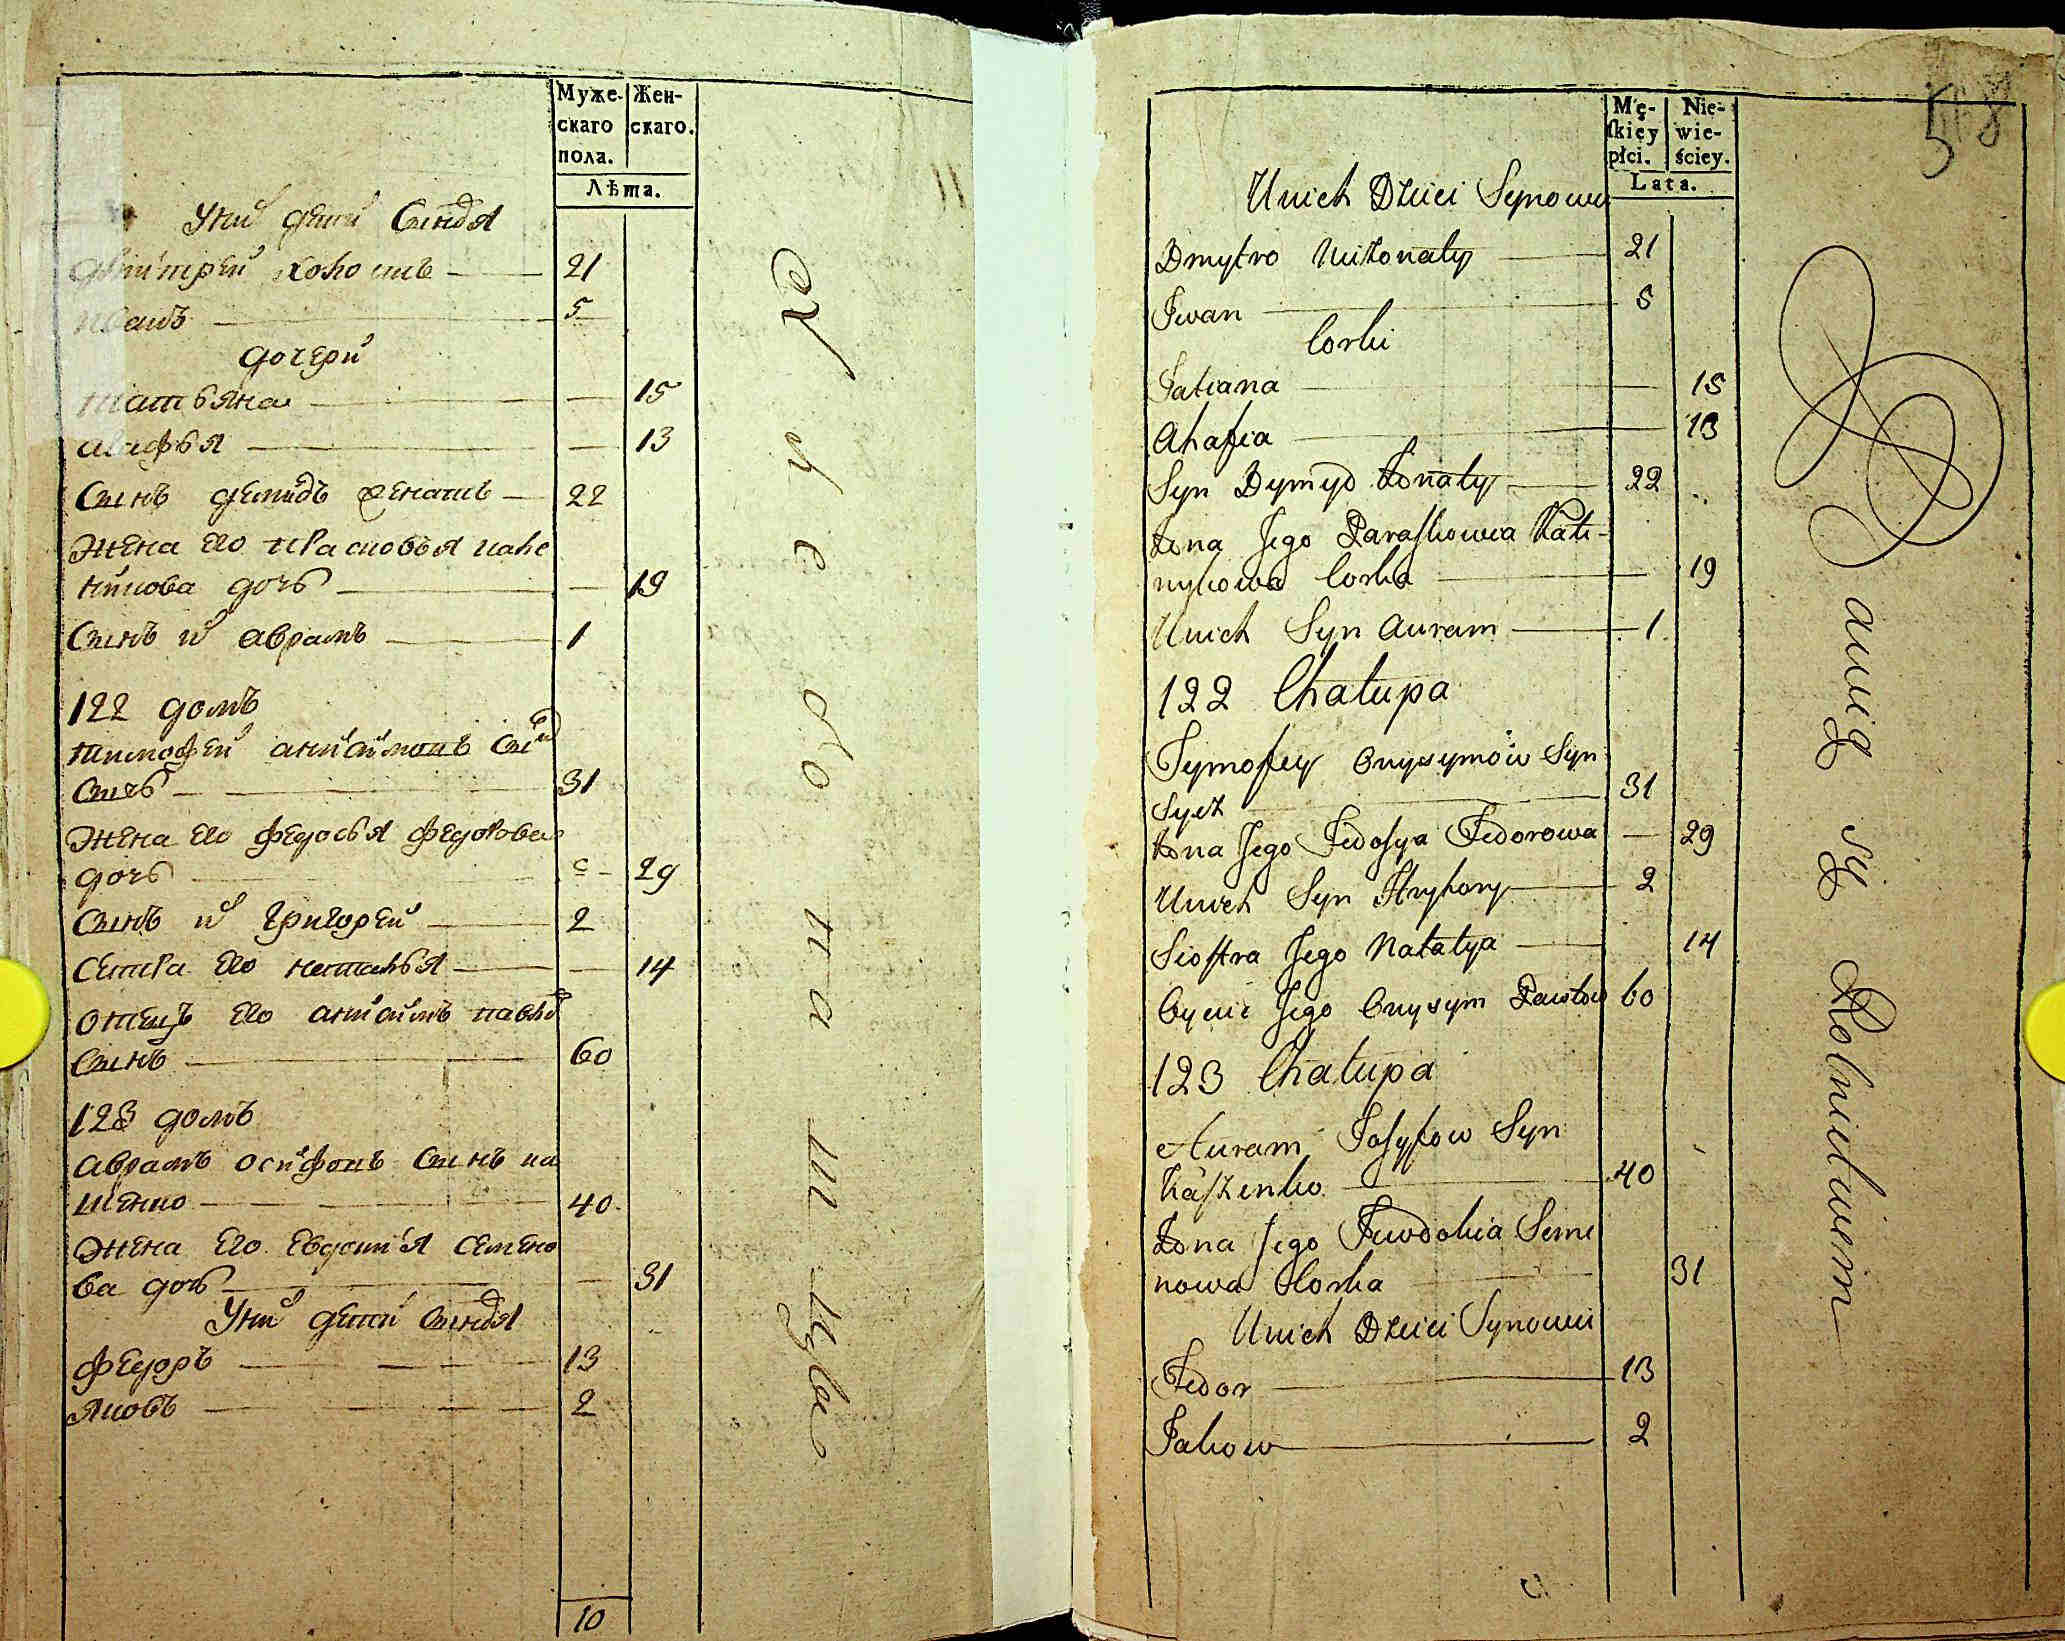 Муже-
скаго
пола.
Жен-
скаго.
Лѣта.
Уних дети Синовя
Дмитрей холость 21
Иванъ 5
дочери
Татьяна 15
Агафья 13
Синъ демидъ женатъ 22
Жена его Прасковья кале
никова дочь 19
Синъ их аврамъ 1
122 домъ
тимофей анисимовъ
Сичь 31
Жена его федосья федорова
дочь 29
Синъ их григорей 2
Сестра его наталья 14
отецъ его анисимъ павлов
Синъ 60
123 домъ
аврамъ осифовъ Синъ ка
шенко 40
Жена его Евдокия семено
ва дочь 31
Уних дети Синовя
федоръ 13
яковъ 2
10
хлебопашцы
58
Mę-
ſkiey
płci.
Nie-
wie-
ściey.
Lata.
Unich Dzieci Synowie
Dmytro Nieżonaty 21
Iwan 5
Corki
Tatiana 15
Ahafia 13
Syn Dymyd Żonaty 22
Żona Jego Paraſkowia Kale-
nykowa Corka 19
Unich Syn Auram 1
122 Chałupa
Tymofey Onysymów Syn
Sycz 31
Żona Jego Fedoſya Fedorowa 29
Unich Syn Hryhory 2
Sioſtra Jego Natalya 14
Oyciec Jego Onysym Pawłow 60
123 Chałupa
Auram Joſypow Syn
Kaſzenko 40
Żona Jego Jewdokia Seme
nowa Corka 31
Unich Dzieci Synowie
Fedor 13
Jakow 2
Bawią się Rolnictwem